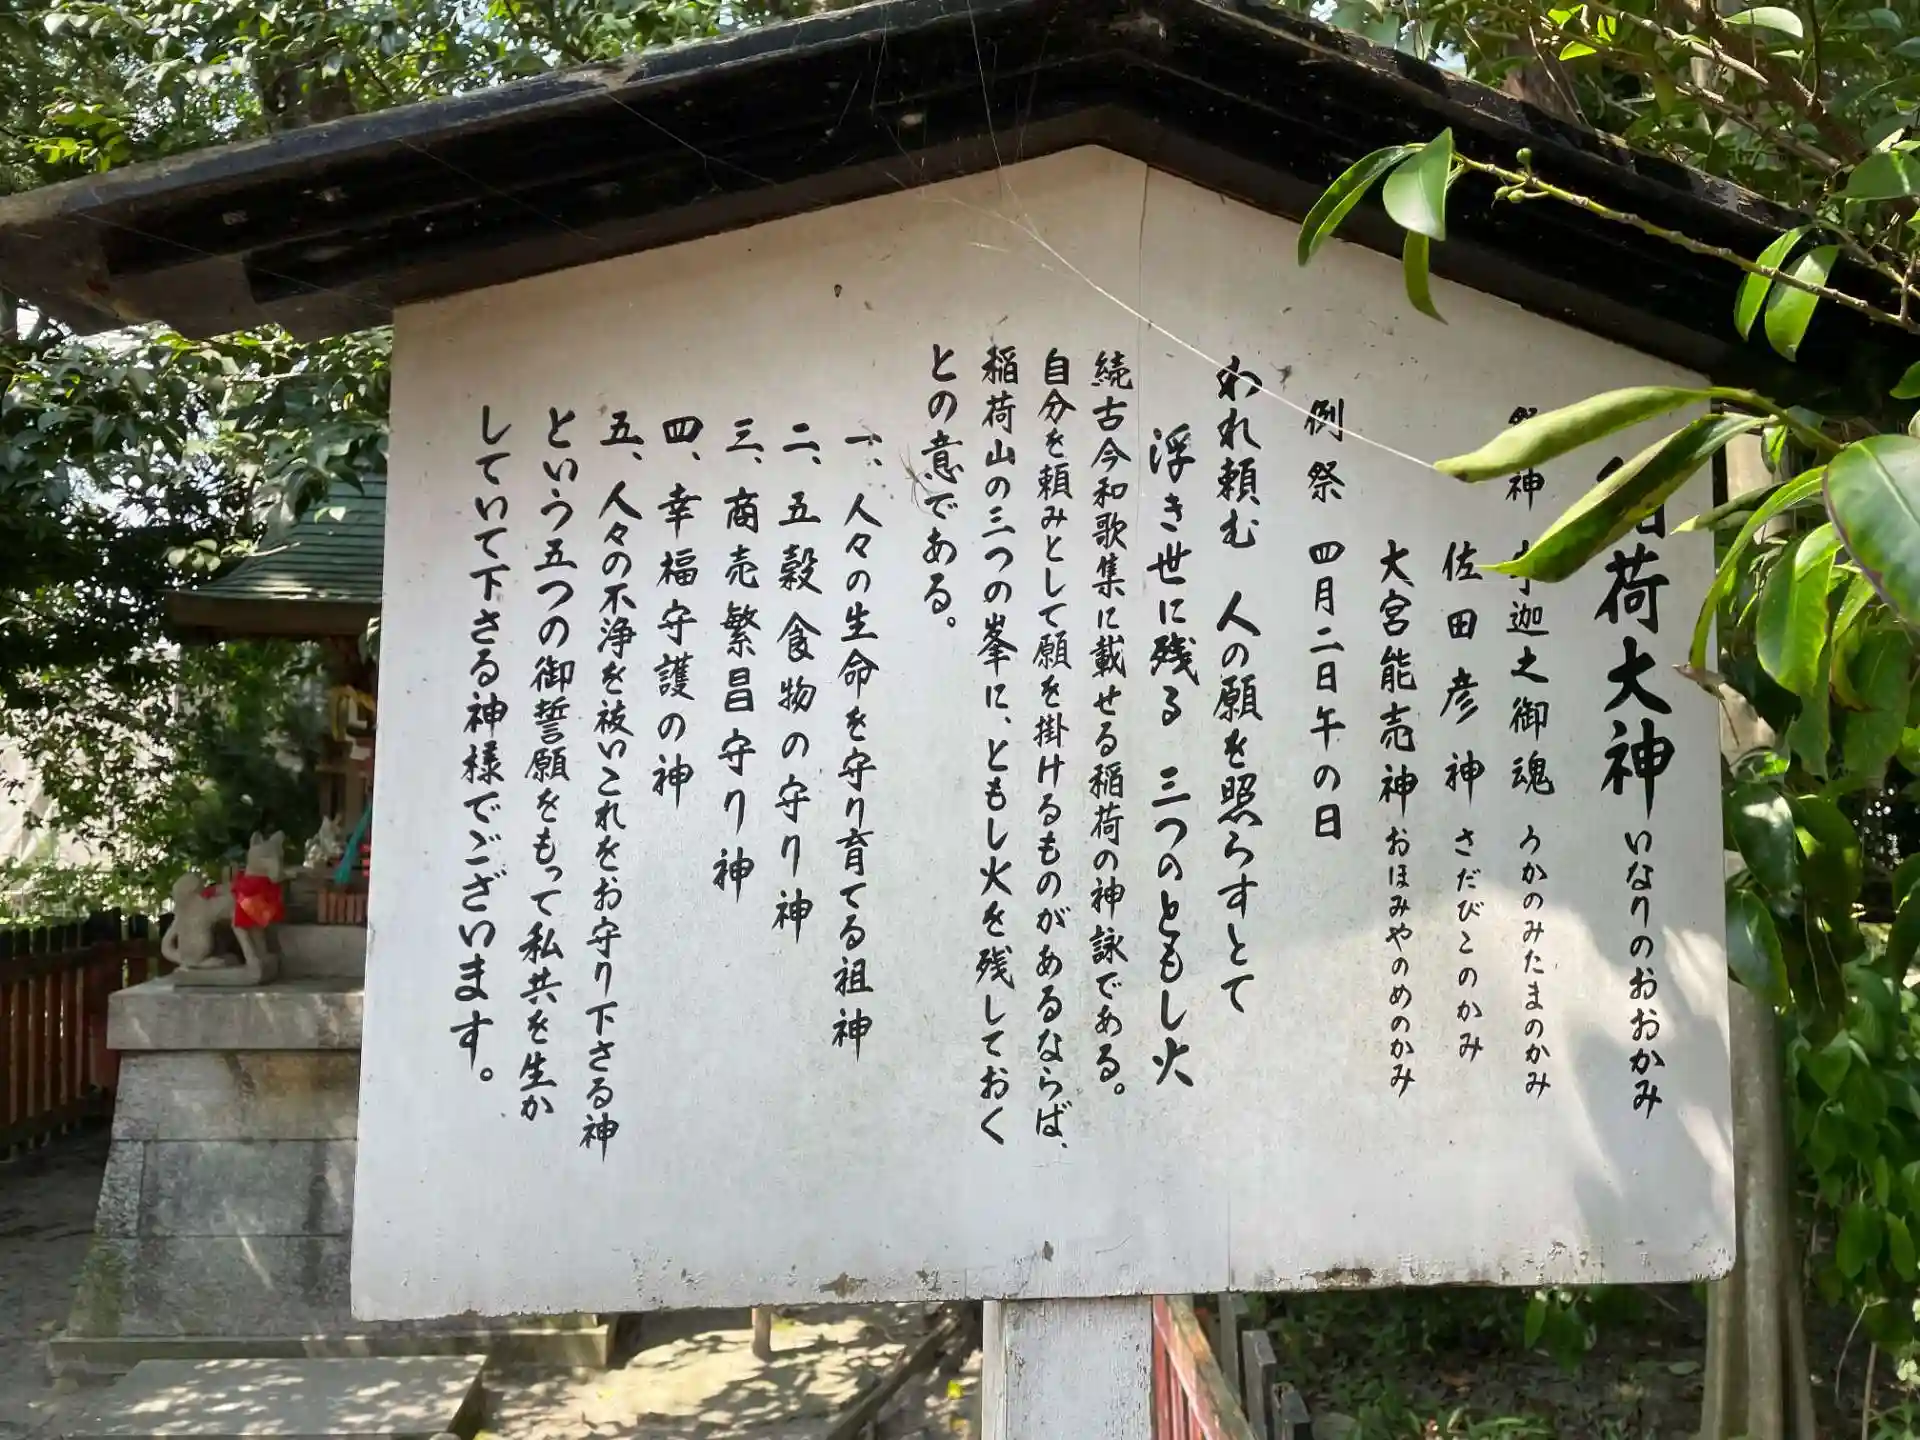 荷大神 いなりのおおかみ
神 迦之御魂 うかのみたまのかみ
佐田彦神 さだびこのかみ
大宮能売神 おほみやのめのかみ
例祭 四月二日午の日
われ頼む 人の願を照らすとて
浮き世に残る 三つのともし火
続古今和歌集に載せる稲荷の神詠である。
自分を頼みとして願を掛けるものがあるならば、
稲荷山の三つの峯に、ともし火を残しておく
との意である。
一、人々の生命を守り育てる祖神
二、五穀食物の守り神
三、商売繁昌守り神
四、幸福守護の神
五、人々の不浄を祓いこれをお守り下さる神
という五つの御誓願をもって私共を生か
していて下さる神様でございます。